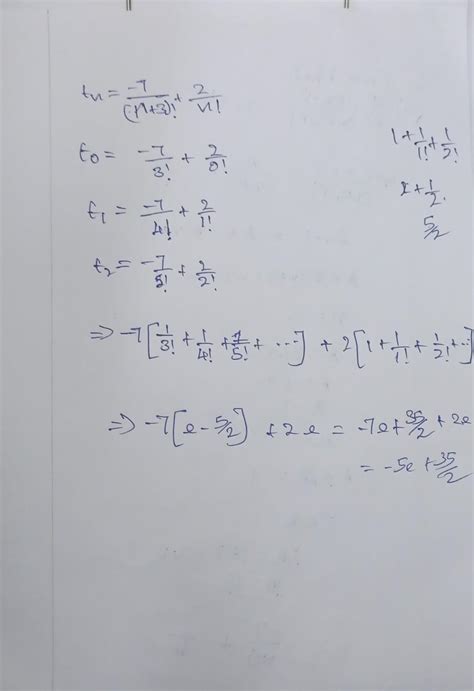 tn = -7/(n+3)! + 2/n!
t0 = -7/3! + 2/0!
t1 = -7/4! + 2/1!
t2 = -7/5! + 2/2!
1 + 1/1! + 1/2!
2 + 1/2
5/2
⇒ -7[1/3! + 1/4! + 1/5! + ...] + 2[1 + 1/1! + 1/2! + ...]
⇒ -7[e - 5/2] + 2e = -7e + 35/2 + 2e
= -5e + 35/2